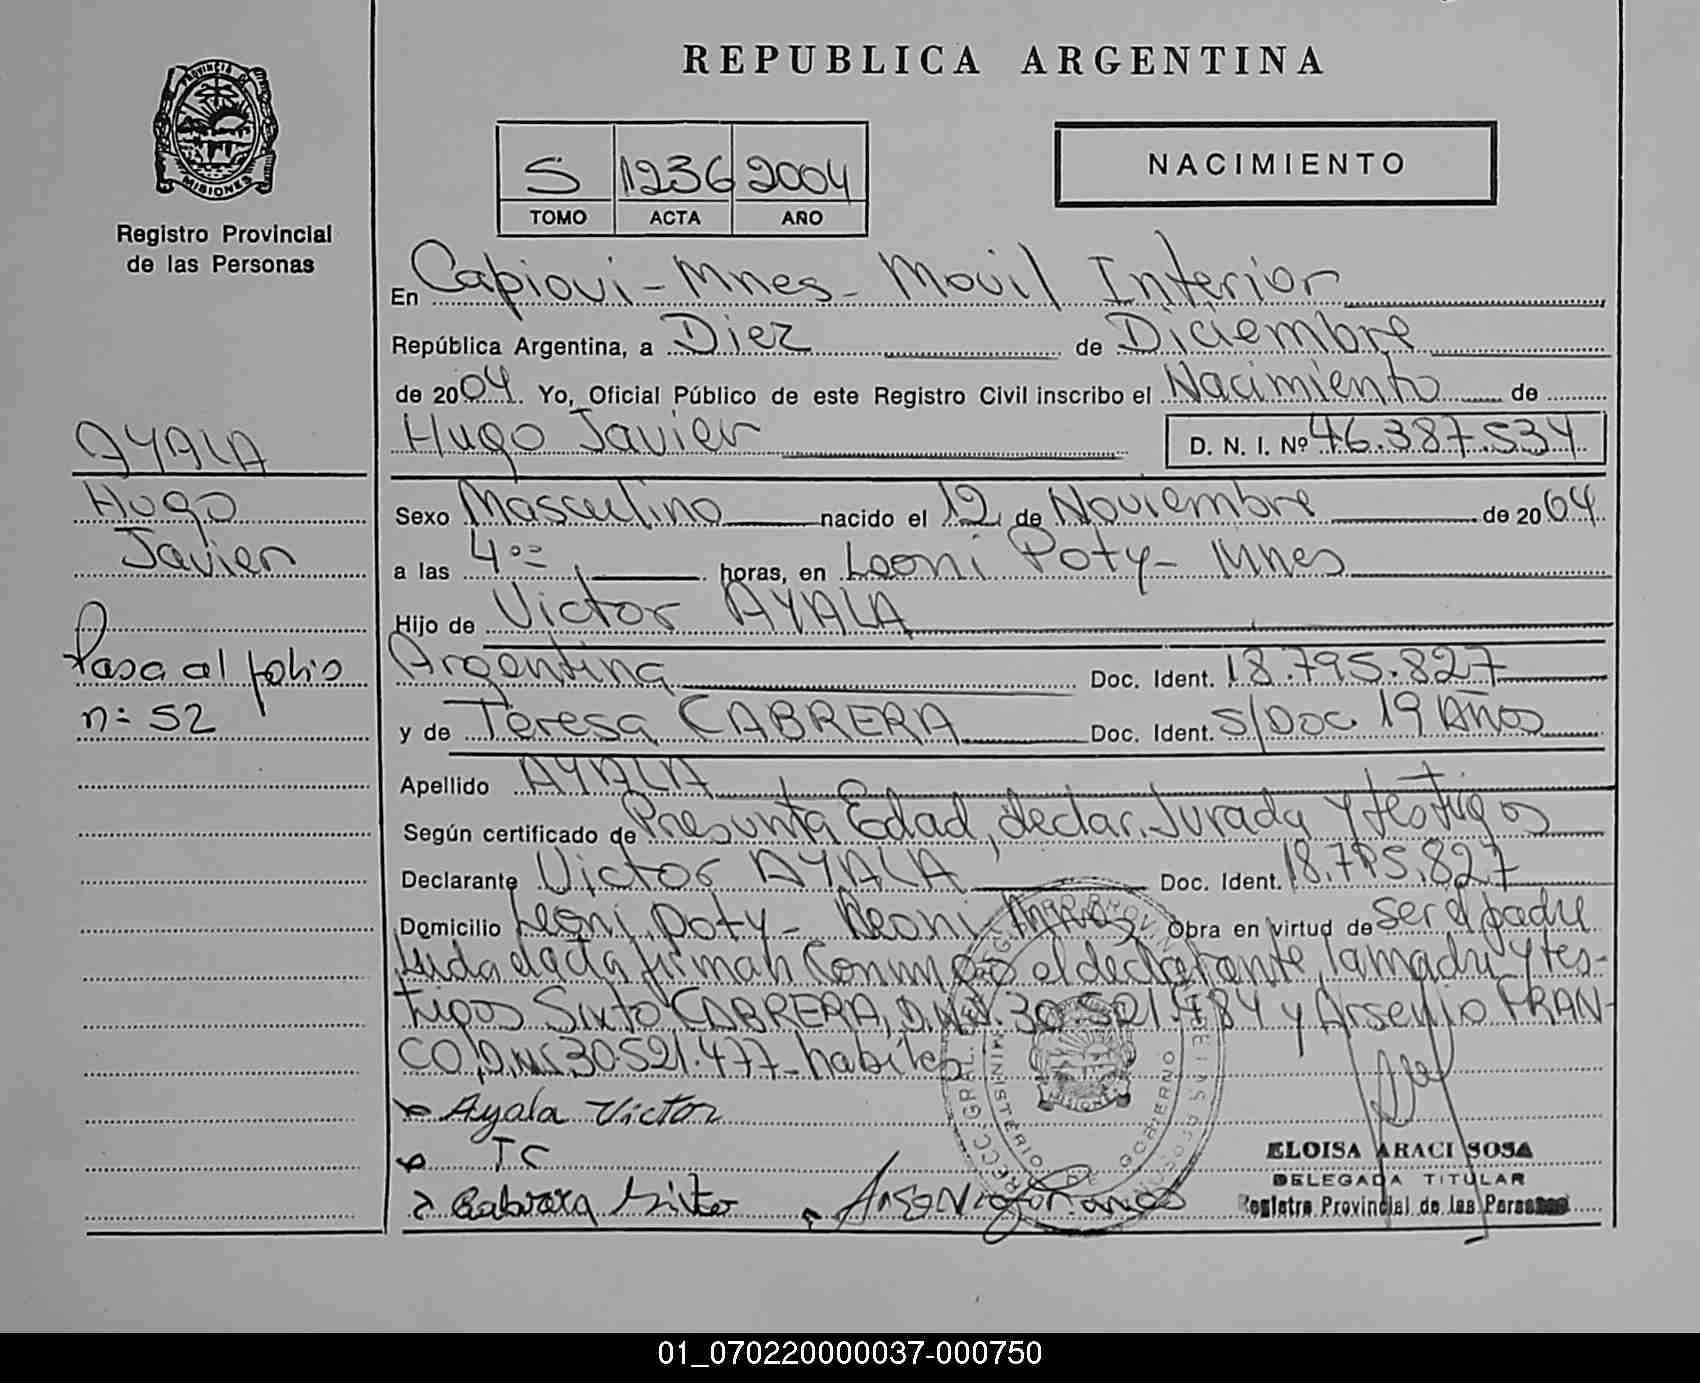 REPUBLICA ARGENTINA
PROVINCIA DE
MISIONES
Registro Provincial
de las Personas
S 1236 2004
TOMO ACTA AÑO
NACIMIENTO
En Capiovi - Mnes - Movil Interior
República Argentina, a Diez de Diciembre
de 2004 Yo, Oficial Público de este Registro Civil inscribo el Nacimiento de
Hugo Javier D. N. I. Nº 46.387.534
AYALA
Hugo
Javier
Pasa al folio
n: 52
Sexo Masculino nacido el 12 de Noviembre de 2004
a las 4 00 horas, en Leoni Poty - Mnes
Hijo de Victor AYALA
Argentina Doc. Ident. 18.795.827
y de Teresa CABRERA Doc. Ident. S/Doc 19 Años
Apellido AYALA
Según certificado de Presunta Edad, declar. Jurada y testigos
Declarante Victor AYALA Doc. Ident. 18.795.827
Domicilio Leoni Poty - Obra en virtud de ser el padre
Leida el acta firman conmigo el declarante, la madre y tes-
tigos Sixto CABRERA, D.N.I. 30.521.484 y Arsenio FRAN-
CO, D.N.I. 30.521.477 - habiles
Ayala Victor
TC
Cabrera Sixto
MINISTERIO DE GOBIERNO
MISIONES
ELOISA ARACI SOSA
DELEGADA TITULAR
Registro Provincial de las Personas
01_070220000037-000750